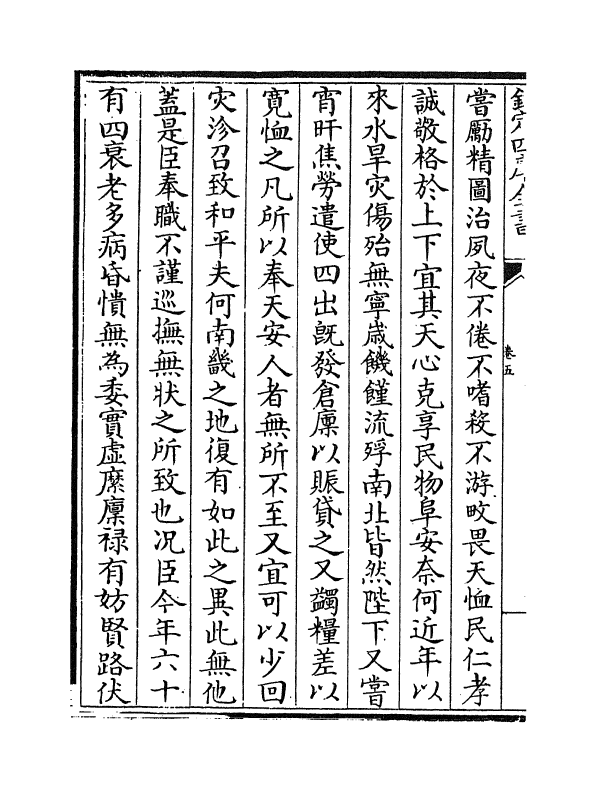 欽定四庫全書
卷五
嘗勵精圖治夙夜不倦不嗜殺不游畋畏天恤民仁孝
誠敬格於上下宜其天心克享民物阜安奈何近年以
來水旱灾傷殆無寧歲饑饉流殍南北皆然陛下又嘗
宵旰焦勞遣使四出既發倉廩以賑貸之又蠲糧差以
寛恤之凡所以奉天安人者無所不至又宜可以少回
灾沴召致和平夫何南畿之地復有如此之異此無他
蓋是臣奉職不謹巡撫無狀之所致也况臣今年六十
有四衰老多病昏憒無為委實虚糜廩禄有妨賢路伏